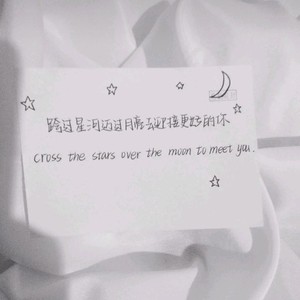 跨过星河迈过月亮去迎接更好的你
Cross the stars over the moon to meet you.